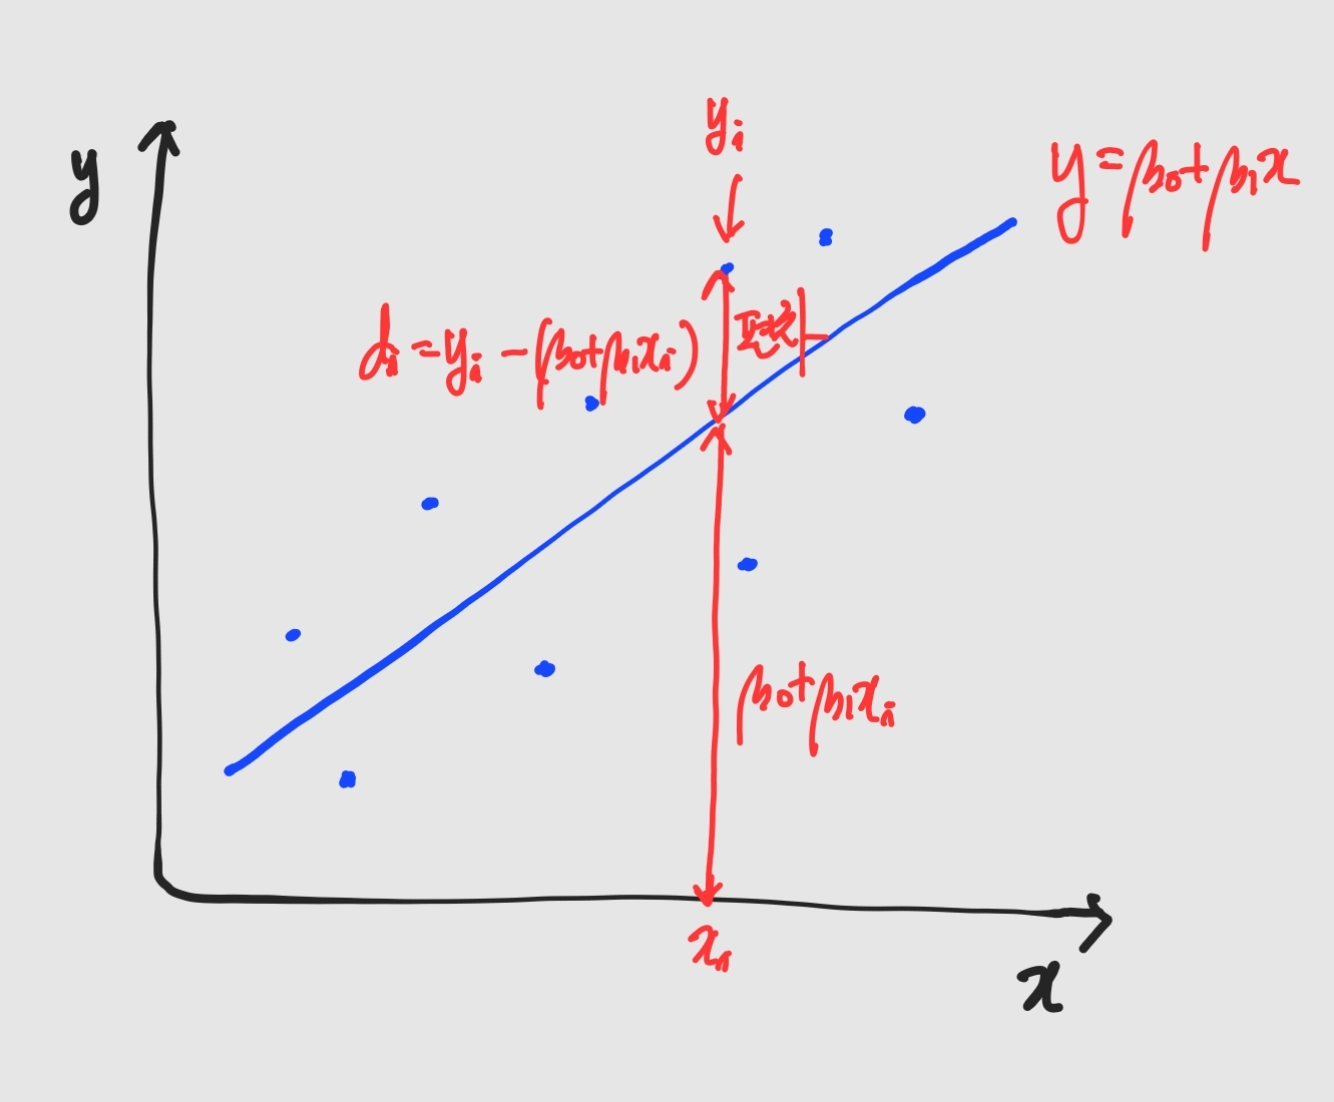 y
yᵢ
y = β₀ + β₁x
dᵢ = yᵢ - (β₀ + β₁xᵢ)
β₀ + β₁xᵢ
xᵢ
x